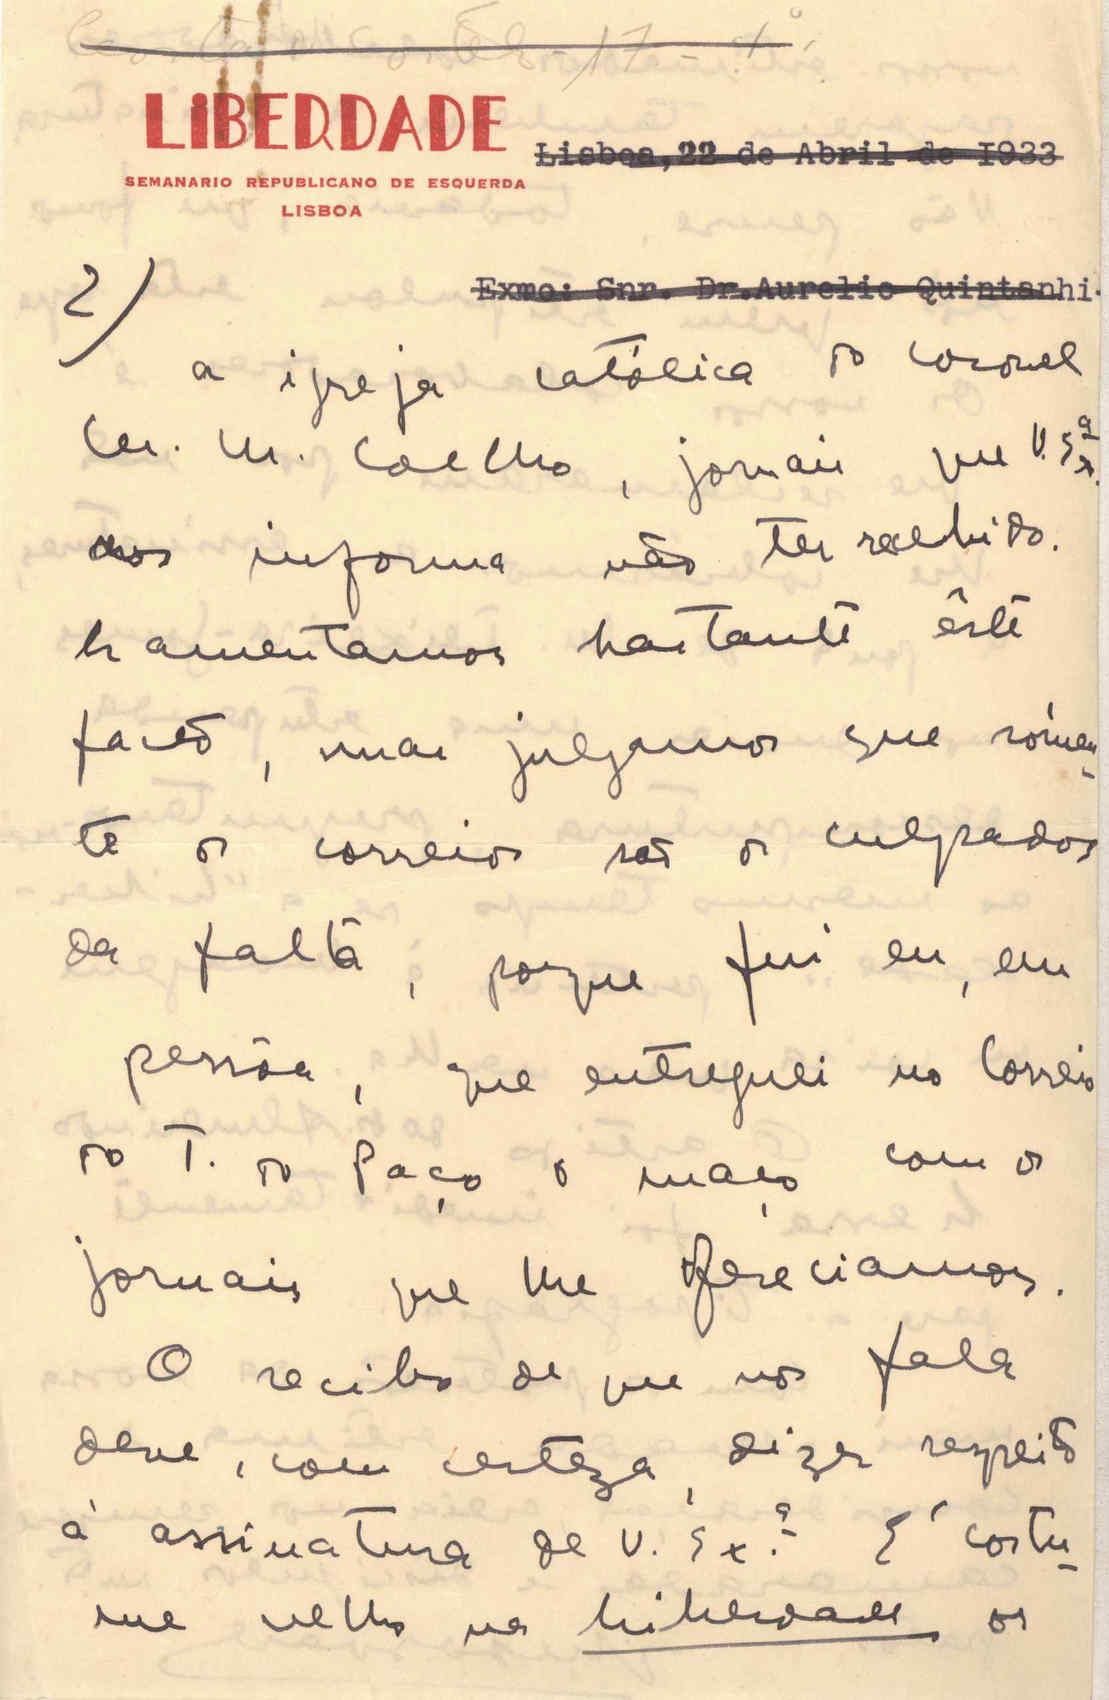 LIBERDADE
SEMANARIO REPUBLICANO DE ESQUERDA
LISBOA
Lisboa,22 de Abril de I933
Exmo: Snr. Dr.Aurelio Quintanhi
2)
a igreja católica do coronel
M. Coelho, jornais que V. Exª.
nos informa não ter recebido.
Lamentamos bastante êste
facto, mas julgamos que sómen-
te os correios são os culpados
da falta, porque fui eu, em
pessôa, que entreguei no Correio
do T. do Paço o maço com os
jornais que lhe ofereciamos.
O recibo de que nos fala
deve, com certeza, dizer respeito
á assinatura de V. Exª. E' costu-
me velho na Liberdade os